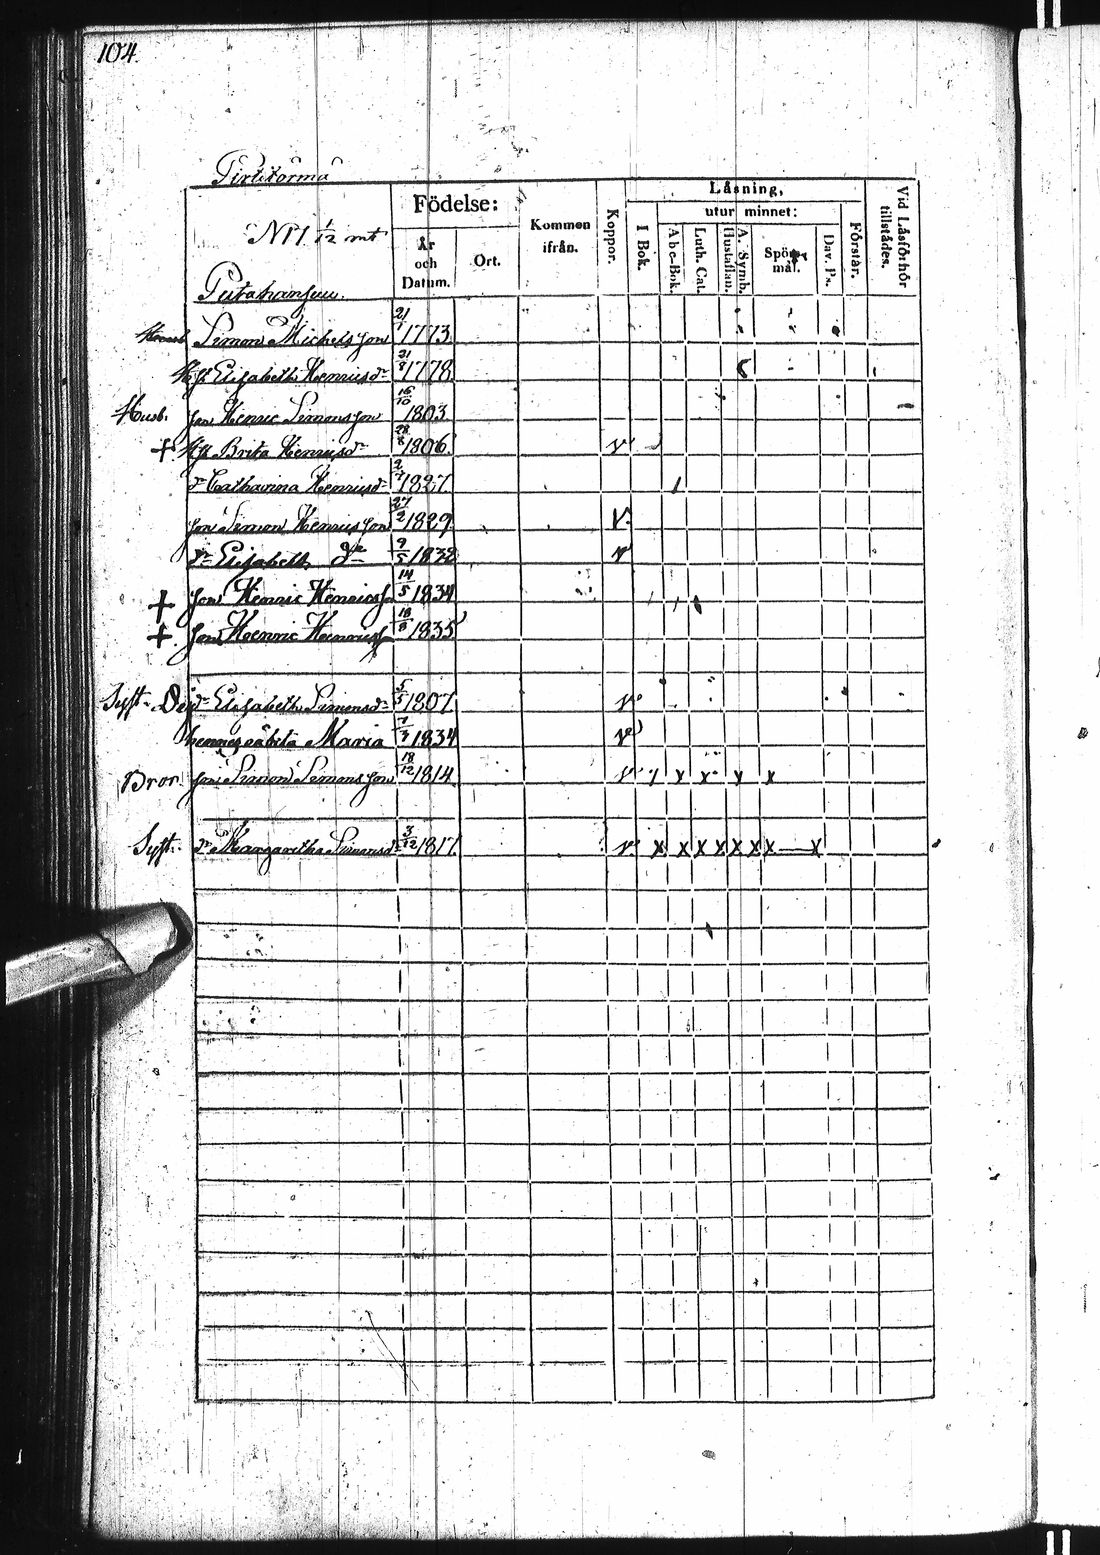 104.
Pirttitörmä
N:11 1/12 mt
Födelse:
År och Datum.
Ort.
Kommen ifrån.
Koppor.
Läsning,
utur minnet:
I Bok.
Abc-Bok.
Luth. Cat.
Hustaflan.
A. Symb.
Spörsmål.
Dav. Ps.
Förstår.
Vid Läsförhör tillstädes.
Simon Michelsson 21/1 1773.
Hst Elisabeth Henricsdr 21/8 1778.
Husb. son Henric Simonsson 16/10 1803
+ Hst Brita Henricsdr 28/8 1806. v
dr Catharina Henricsdr 2/7 1827.
son Simon Henricsson 27/2 1829. v
dr Elisabeth dr 9/5 1832 v
+ son Henric Henricsson 14/5 1834
+ son Henric Henricsson 18/8 1835
Syst. dr Elisabeth Simonsdr 5/5 1807. v
hennes oäkta Maria 7/3 1834 v
Bror son Simon Simonsson 18/12 1814 v x x x x
Syst. dr Margaretha Simonsdr 3/12 1817. v x x x x x x x x